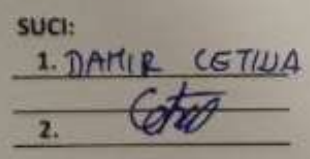 SUCI:
1. DAMIR CETINA
2.